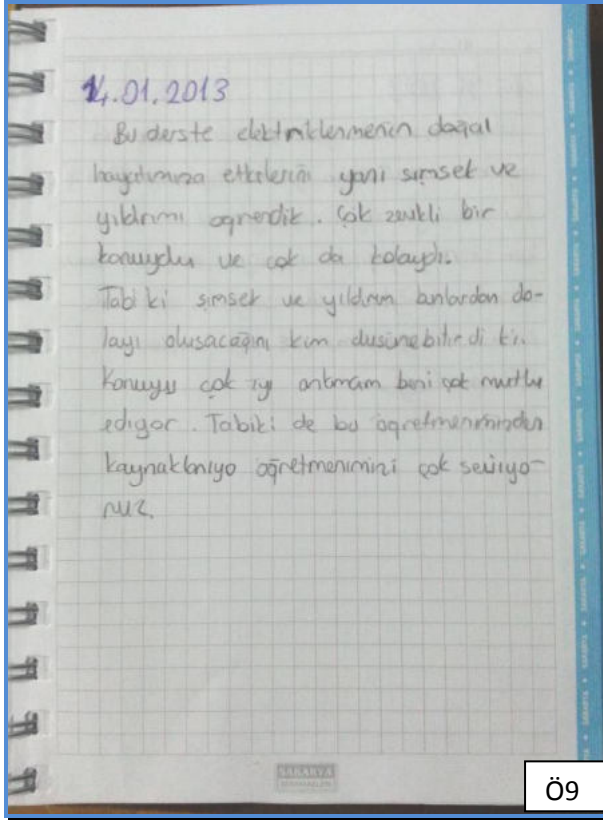 14.01.2013
Bu derste elektriklenmenin doğal
hayatımıza etkilerini yani simsek ve
yıldırımı ogrendik. Çok zevkli bir
konuydu ve cok da kolaydı.
Tabi ki simsek ve yıldırım bunlardan do-
layı olusacağını kim dusunebilirdi ki.
Konuyu çok iyi anlamam beni çok mutlu
ediyor. Tabiki de bu ogretmenimizden
kaynaklanıyo öğretmenimizi çok seviyo-
ruz.
SAKARYA
Ö9